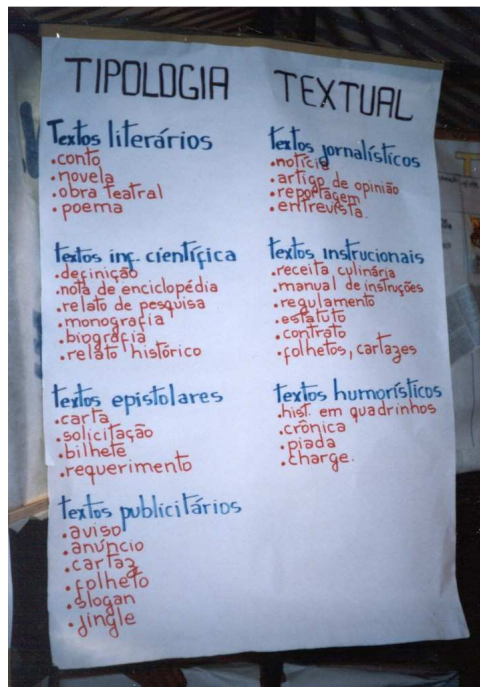 TIPOLOGIA TEXTUAL
Textos literários
.conto
.novela
.obra teatral
.poema
textos inf. científica
.definição
.nota de enciclopédia
.relato de pesquisa
.monografia
.biografia
.relato histórico
textos epistolares
.carta
.solicitação
.bilhete
.requerimento
textos publicitários
.aviso
.anúncio
.cartaz
.folheto
.slogan
.jingle
textos jornalísticos
.notícia
.artigo de opinião
.reportagem
.entrevista.
textos instrucionais
.receita culinária
.manual de instruções
.regulamento
.estatuto
.contrato
.folhetos, cartazes
textos humorísticos
.hist. em quadrinhos
.crônica
.piada
.charge.